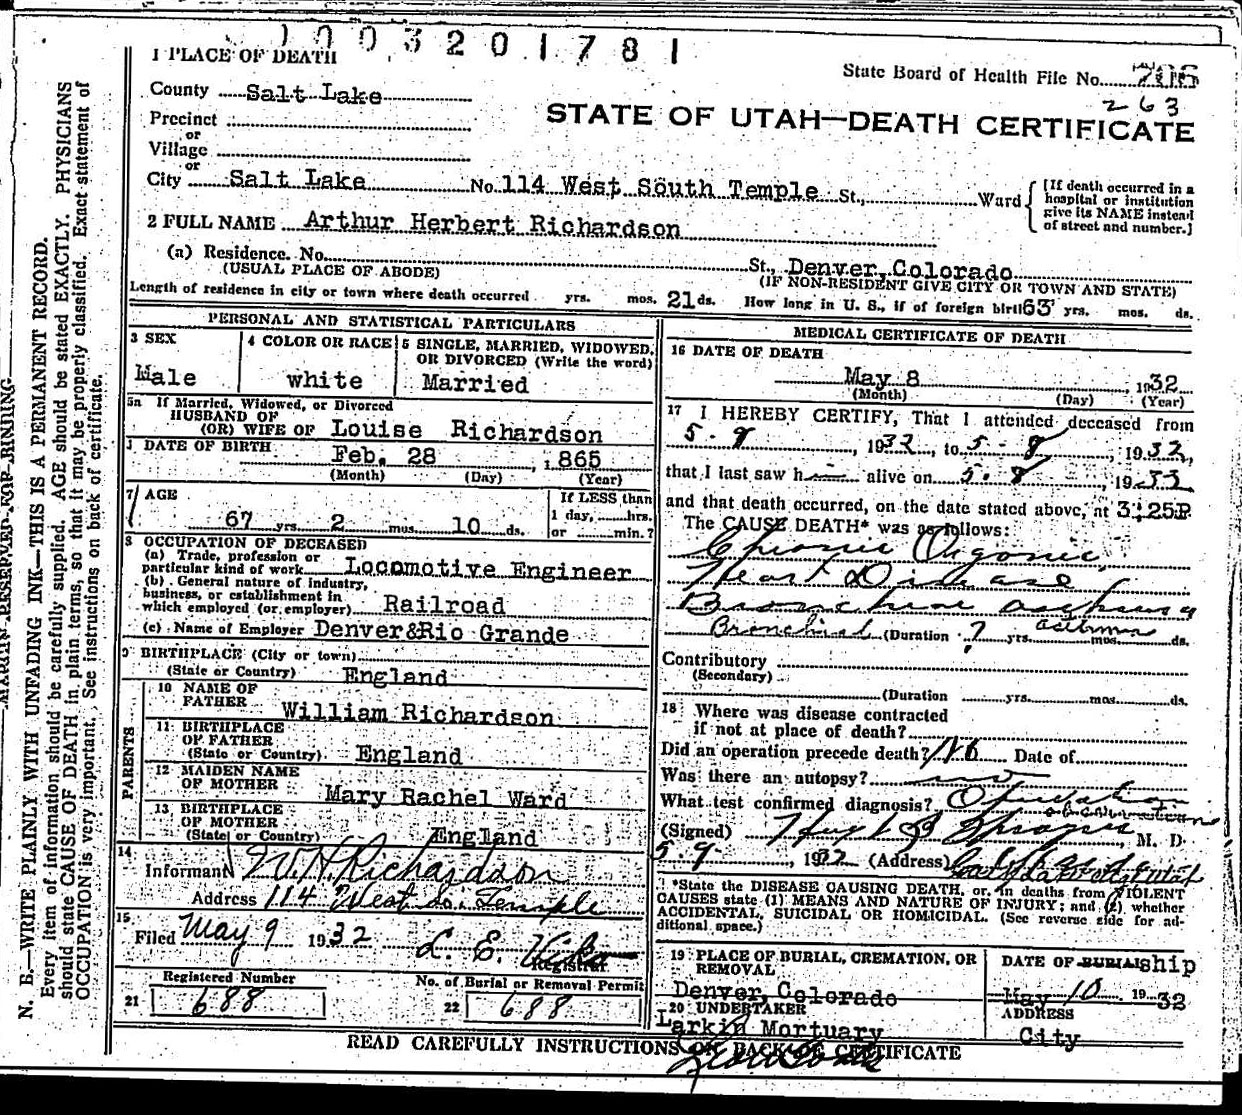 1003201781
1 PLACE OF DEATH
State Board of Health File No. 706
263
County Salt Lake
STATE OF UTAH—DEATH CERTIFICATE
Precinct
or
Village
or
City Salt Lake No. 114 West South Temple St., Ward
[If death occurred in a hospital or institution give its NAME instead of street and number.]
2 FULL NAME Arthur Herbert Richardson
(a) Residence. No. St., Denver, Colorado
(USUAL PLACE OF ABODE) (IF NON-RESIDENT GIVE CITY OR TOWN AND STATE)
Length of residence in city or town where death occurred yrs. mos. 21 ds. How long in U. S., if of foreign birth 63 yrs. mos. ds.
PERSONAL AND STATISTICAL PARTICULARS
3 SEX
Male
4 COLOR OR RACE
white
5 SINGLE, MARRIED, WIDOWED, OR DIVORCED (Write the word)
Married
5a If Married, Widowed, or Divorced
HUSBAND OF
(OR) WIFE OF Louise Richardson
DATE OF BIRTH
Feb. 28, 1865
(Month) (Day) (Year)
7 AGE
67 yrs. 2 mos. 10 ds.
If LESS than
1 day, hrs.
or min.?
8 OCCUPATION OF DECEASED
(a) Trade, profession or
particular kind of work Locomotive Engineer
(b) General nature of industry,
business, or establishment in
which employed (or employer) Railroad
(c) Name of Employer Denver&Rio Grande
9 BIRTHPLACE (City or town)
(State or Country) England
PARENTS
10 NAME OF
FATHER William Richardson
11 BIRTHPLACE
OF FATHER
(State or Country) England
12 MAIDEN NAME
OF MOTHER Mary Rachel Ward
13 BIRTHPLACE
OF MOTHER
(State or Country) England
14
Informant W. H. Richardson
Address 114 West So. Temple
15
Filed May 9 1932 L. E.
Registrar
Registered Number
21 688
No. of Burial or Removal Permit
22 688
MEDICAL CERTIFICATE OF DEATH
16 DATE OF DEATH
May 8, 1932
(Month) (Day) (Year)
17 I HEREBY CERTIFY, That I attended deceased from
1932, to 5-8, 1932,
that I last saw him alive on 5-8, 19
and that death occurred, on the date stated above, at 3:25P
The CAUSE DEATH* was as follows:
Chronic Organic
Heart Disease
Bronchial asthma
Bronchial (Duration ? yrs. asthma mos. ds.
Contributory
(Secondary)
(Duration yrs. mos. ds.
18 Where was disease contracted
if not at place of death?
Did an operation precede death? No Date of
Was there an autopsy? no
What test confirmed diagnosis?
(Signed) M. D.
5-9, 1932 (Address)
*State the DISEASE CAUSING DEATH, or, in deaths from VIOLENT
CAUSES state (1) MEANS AND NATURE OF INJURY; and (2) whether
ACCIDENTAL, SUICIDAL OR HOMICIDAL. (See reverse side for ad-
ditional space.)
19 PLACE OF BURIAL, CREMATION, OR
REMOVAL
Denver, Colorado
DATE OF BURIAL ship
May 10 1932
20 UNDERTAKER
Larkin Mortuary
ADDRESS
City
READ CAREFULLY INSTRUCTIONS ON BACK OF CERTIFICATE
MARGIN RESERVED FOR BINDING
N. B.—WRITE PLAINLY WITH UNFADING INK—THIS IS A PERMANENT RECORD.
Every item of information should be carefully supplied. AGE should be stated EXACTLY. PHYSICIANS
should state CAUSE OF DEATH in plain terms, so that it may be properly classified. Exact statement of
OCCUPATION is very important. See instructions on back of certificate.